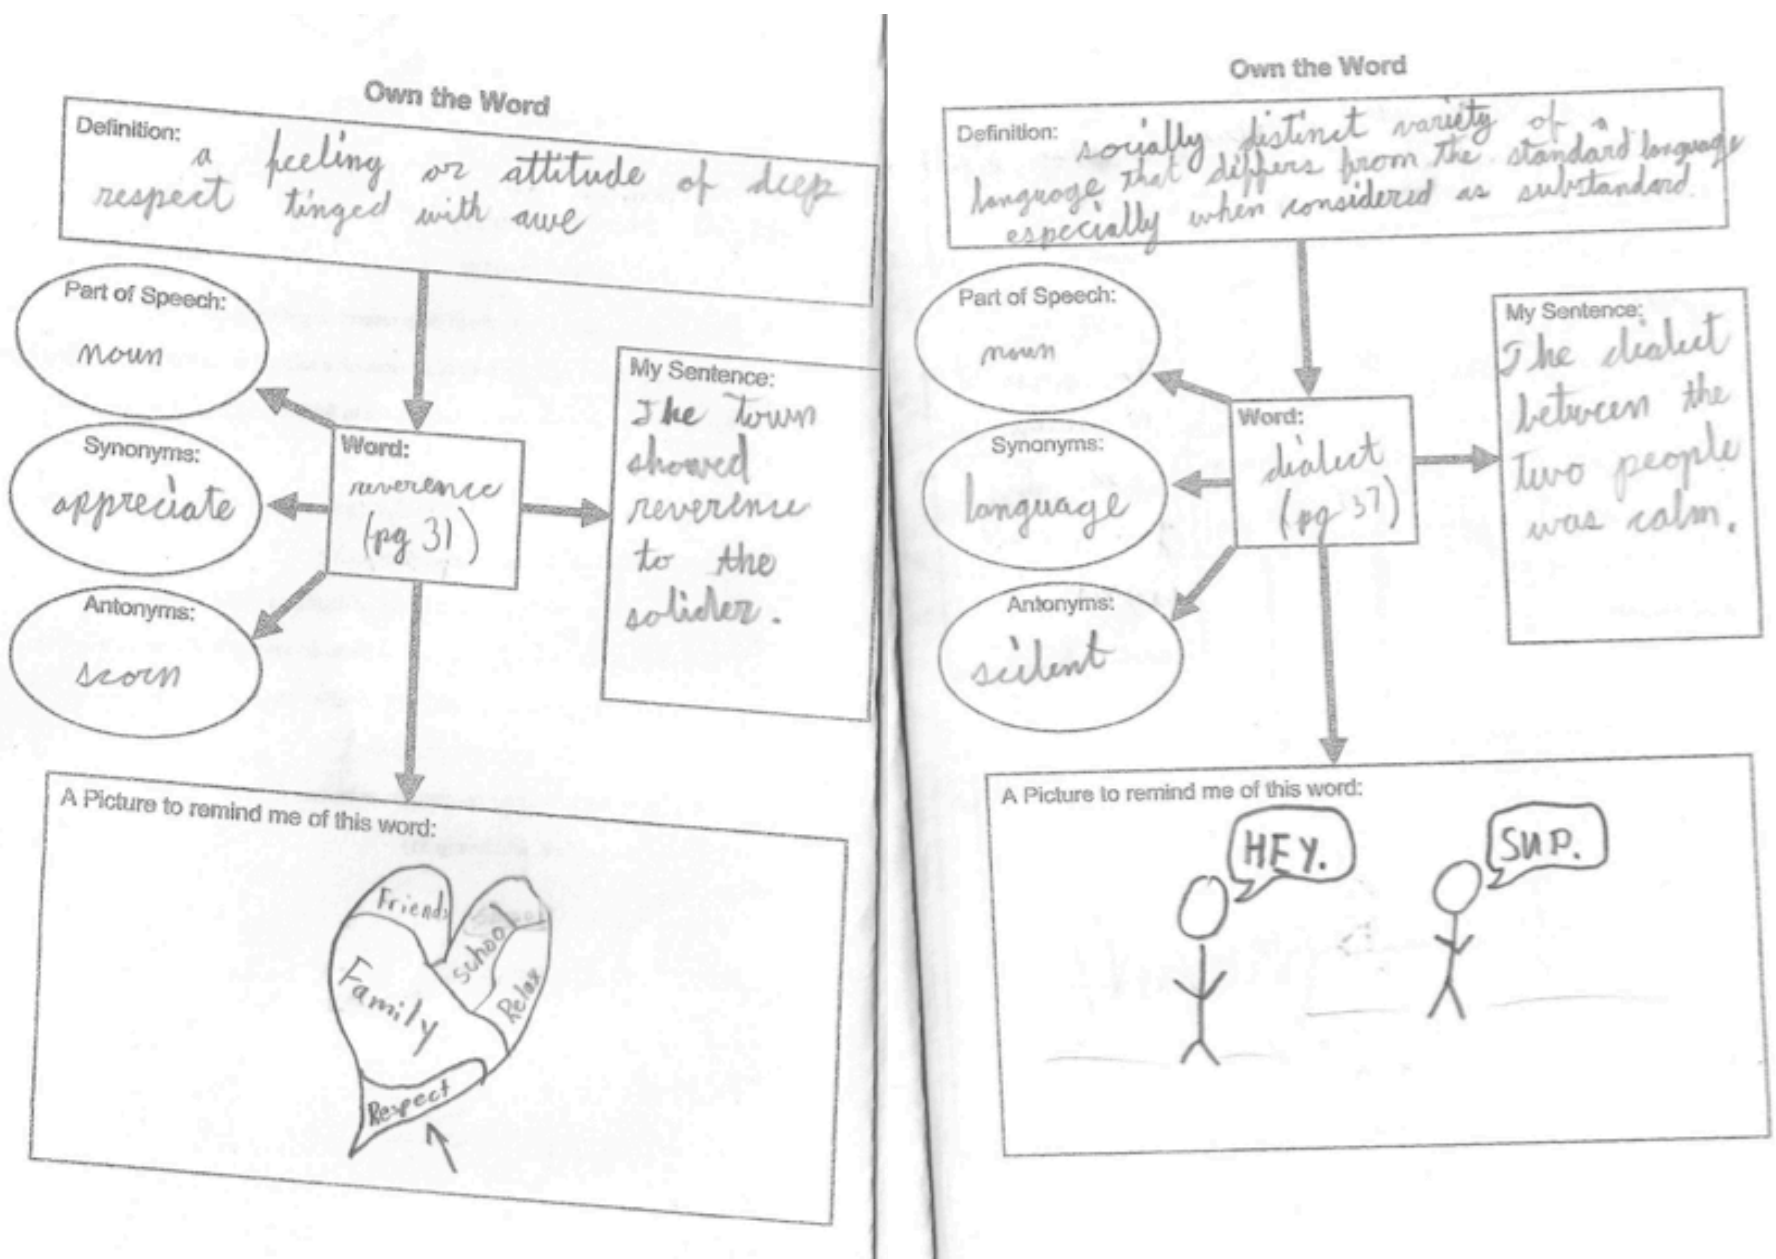 Own the Word
Definition:
a feeling or attitude of deep
respect tinged with awe
Part of Speech:
noun
Synonyms:
appreciate
Antonyms:
scorn
Word:
reverence
(pg 31)
My Sentence:
The town
showed
reverence
to the
solider.
A Picture to remind me of this word:
Friends
School
Family
Relax
Respect
Own the Word
Definition:
socially distinct variety of a
language that differs from the standard language
especially when considered as substandard.
Part of Speech:
noun
Synonyms:
language
Antonyms:
scilent
Word:
dialect
(pg 37)
My Sentence:
The dialect
between the
two people
was calm.
A Picture to remind me of this word:
HEY.
SUP.